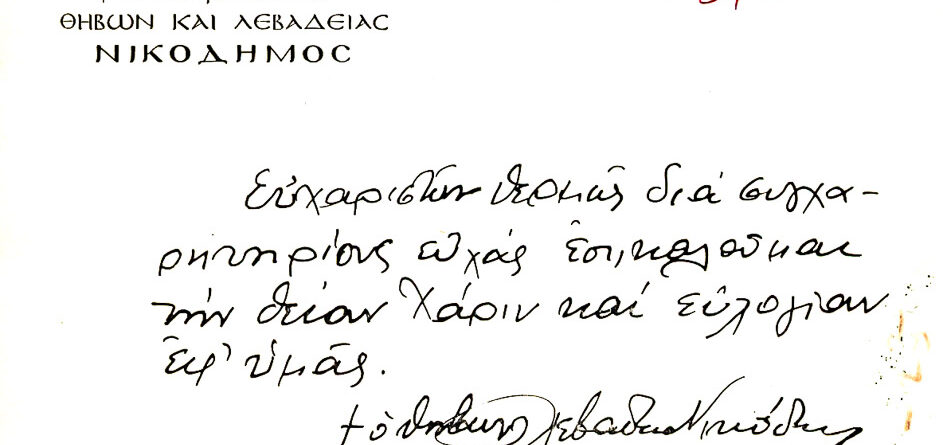 ΘΗΒΩΝ ΚΑΙ ΛΕΒΑΔΕΙΑΣ
ΝΙΚΟΔΗΜΟΣ
Εὐχαριστῶν θερμῶς διά συγχα-
ρητηρίους εὐχάς ἐπικαλοῦμαι
τήν θείαν Χάριν καί εὐλογίαν
ἐφ' ὑμᾶς.
† ὁ Θηβῶν Λεβαδείας Νικόδημος